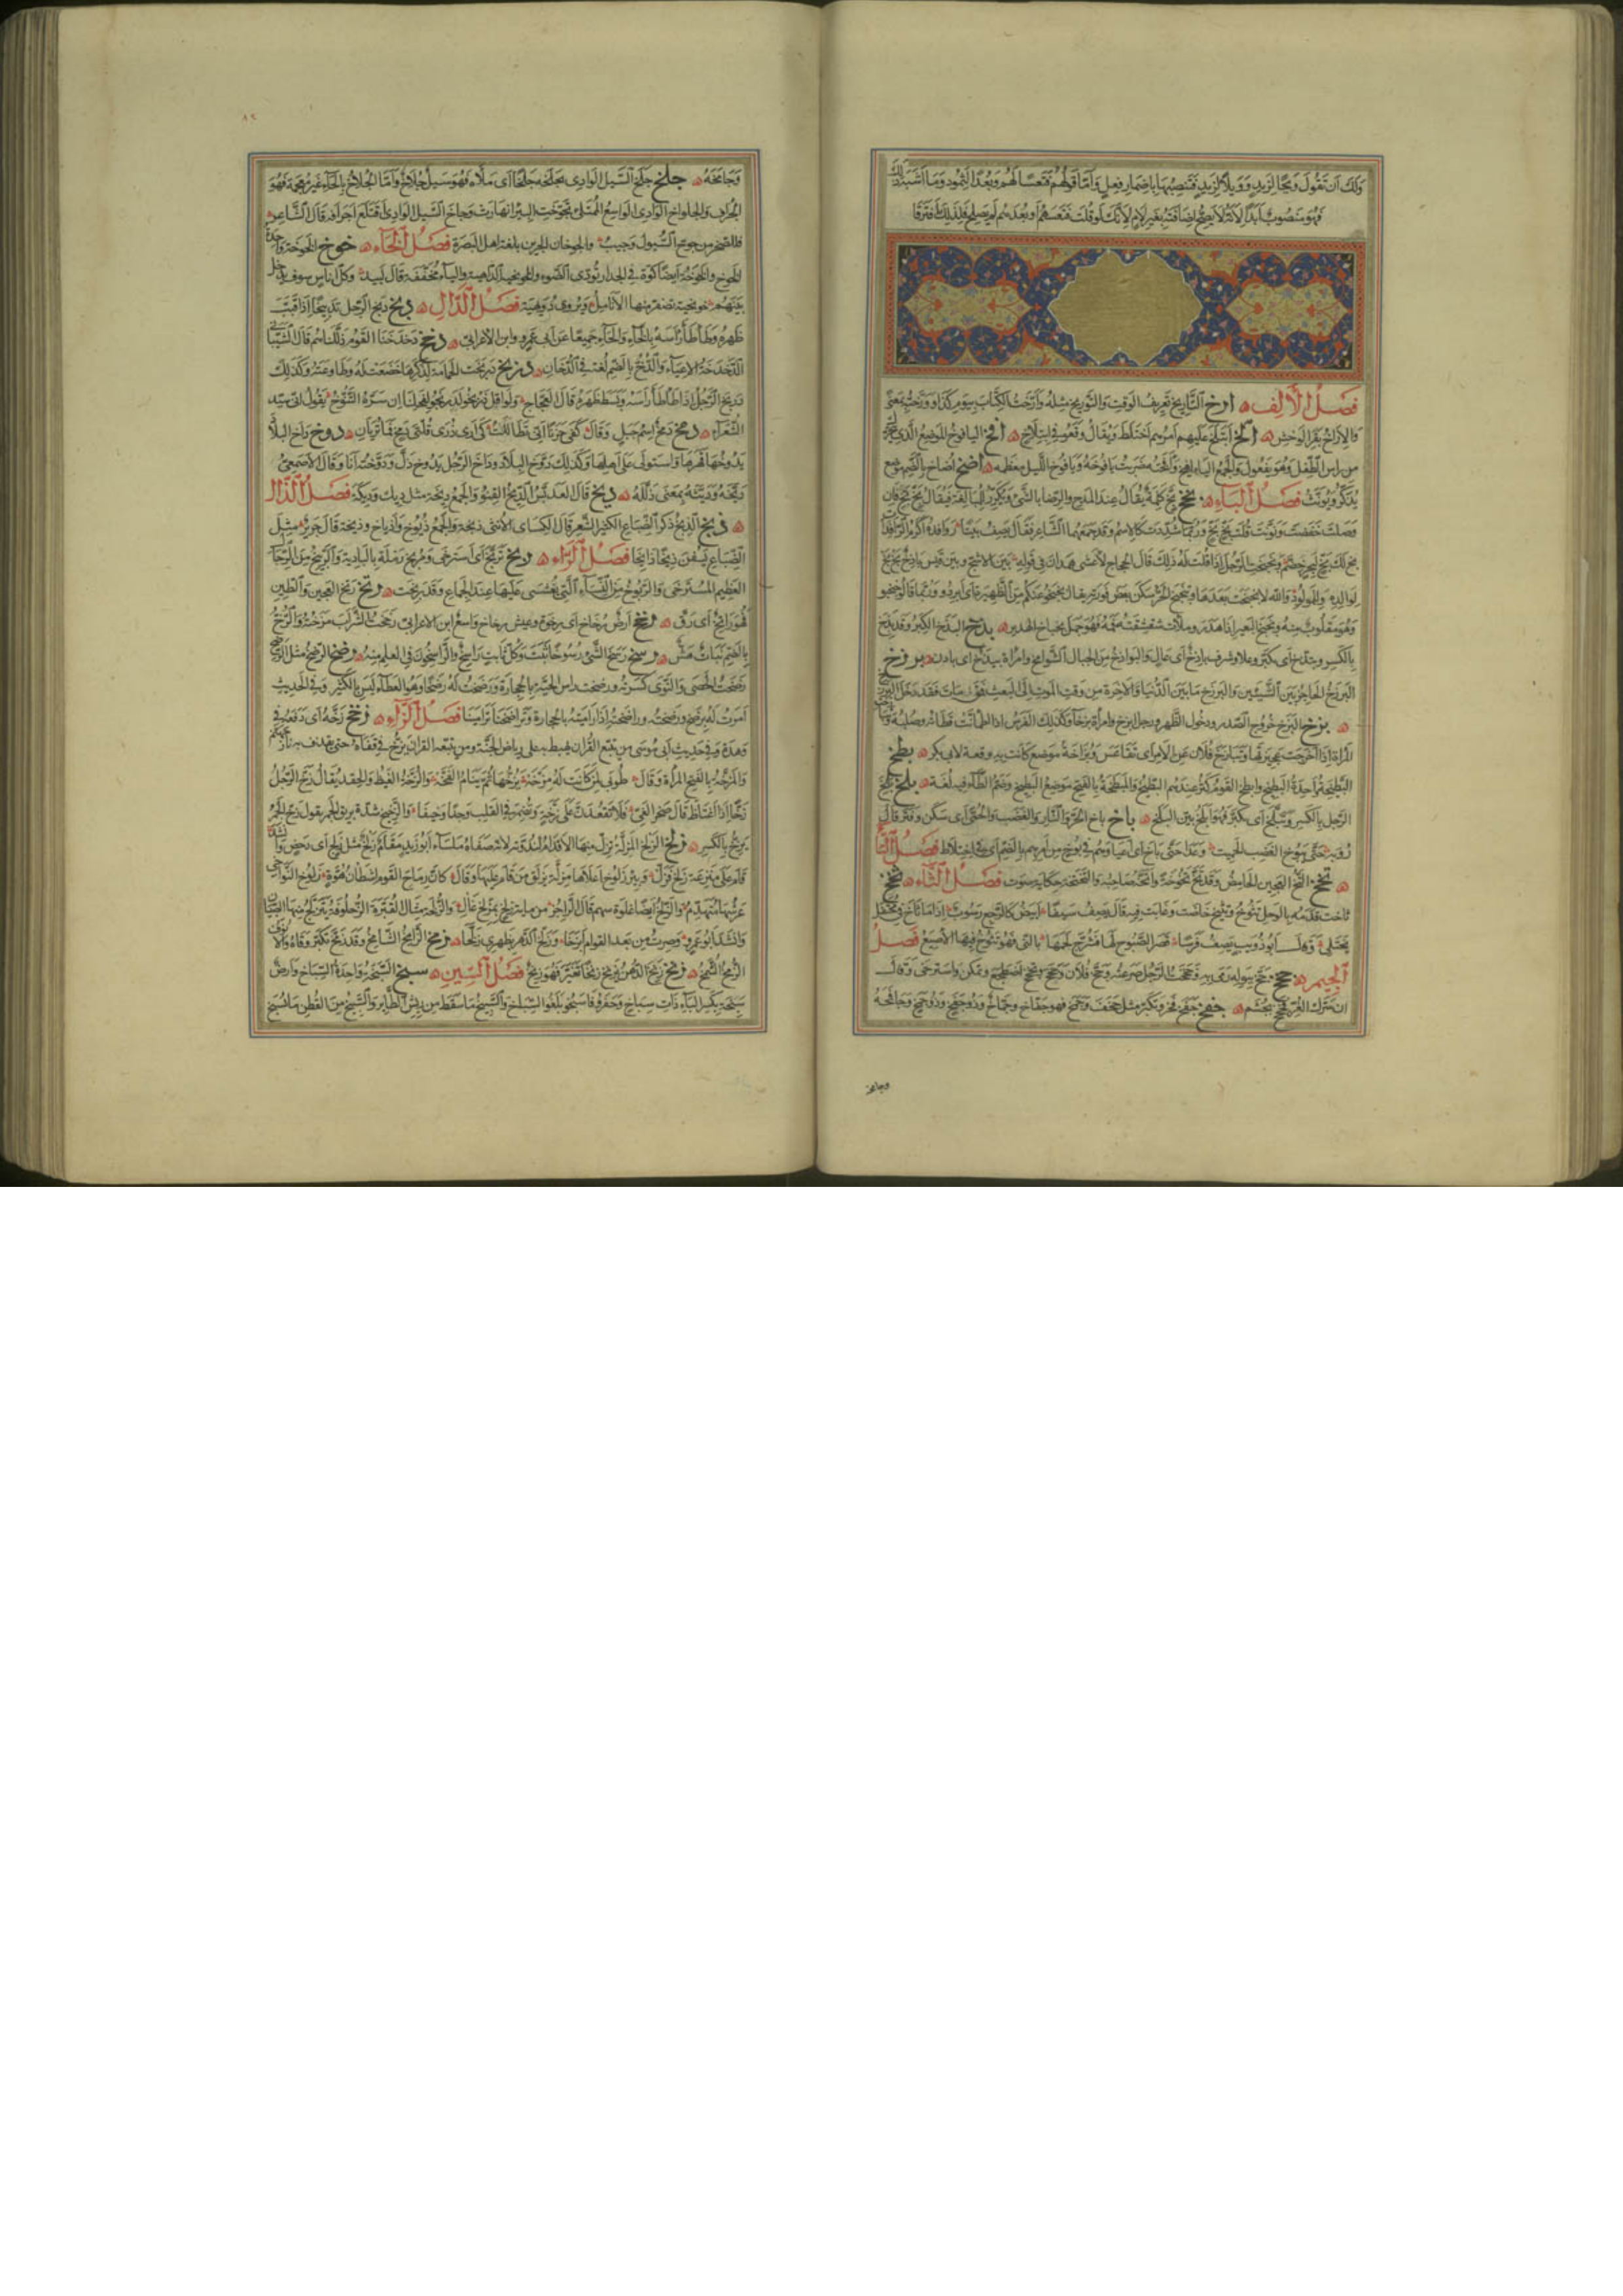 ولك ان تقول ويحا لزيد وويلا لزيد فتنصبهما باضمار فعل واما قولهم فتعسا لهم وبعدا لثمود وما اشبه ذلك
فهو منصوب ابدا لانه لا يصح اضافته بغير لام لانك لو قلت فتعسهم او بعدهم لم يصلح فلذلك افترقا
فصل الألف ارخ التاريخ تعريف الوقت والتوريخ مثله وارخت الكتاب بيوم كذا وورخته بمعنى
والاراخ بقر الوحش الخ ائتلخ عليهم امرهم اختلط ويقال وقعوا في ائتلاخ افخ اليافوخ الموضع الذي
من راس الطفل وهو يفعول والجمع اليافيخ وافخته ضربت يافوخه ويافوخ الليل معظمه اضخ اضاخ بالضم موضع
يذكر ويؤنث فصل الباء بخخ بخ كلمة يقال عند المدح والرضا بالشئ وتكرر للمبالغة فيقال بخ بخ فان
وصلت خفضت ونونت فقلت بخ بخ وربما شددت كالاسم وقد جمعهما الشاعر فقال يصف بيتا روافده اكرم الرافدات
بخ لك بخ لبحر خضم وبخبخت الرجل اذا قلت له ذلك قال الحجاج لاعشى همدان في قوله بين الاشج وبين قيس باذخ بخ بخ
لوالده وللمولود والله لا بخبخت بعدها وتبخبخ الحر سكن بعض فورته يقال بخبخوا عنكم من الظهيرة اي ابردوا وربما قالوا خبخبوا
وهو مقلوب منه وبخبخ البعير اذا هدر وملات شقشقته فمه فهو جمل بخباخ الهدير بذخ البذخ الكبر وقد بذخ
بالكسر وتبذخ اي تكبر وعلا وشرف باذخ اي عال والبواذخ من الجبال الشوامخ وامراة بيذخ اي بادن برزخ
البرزخ الحاجز بين الشيئين والبرزخ ما بين الدنيا والاخرة من وقت الموت الى البعث فمن مات فقد دخل البرزخ
بزخ البزخ خروج الصدر ودخول الظهر ورجل ابزخ وامراة بزخاء وكذلك الفرس اذا اطمانت قطاته وصلبه
المراة اذا اخرجت عجيزتها وتبازخ فلان عن الامر اي تقاعس وبزاخة موضع كانت به وقعة لابي بكر بطخ
البطيخة واحدة البطيخ وابطخ القوم كثر عندهم البطيخ والمبطخة بالفتح موضع البطيخ وضم الطاء فيه لغة بلخ بلخ
الرجل بالكسر وتبلخ اي تكبر فهو ابلخ بين البلخ باخ باخ الحر والنار والغضب والحمى اي سكن وفتر قال
رؤبة حتى يبوخ الغضب الحميت وعدا حتى باخ اي اعيا وهم في بوخ من امرهم بالضم اي في اختلاط فصل التاء
تخخ التخ العجين الحامض وقد تخ تخوخة واتخه صاحبه والتختخة حكاية صوت فصل الثاء ثخخ
ثاخت قدمه بالوحل تثوخ وتثيخ خاضت وغابت فيه قال يصف سيفا ابيض كالرجع رسوب اذا ما ثاخ في محتفل
يختلي وقال ابو ذؤيب يصف فرسا قصر الصبوح لها فشرج لحمها بالني فهو تثوخ فيها الاصبع فصل
الجيم جخخ جخ ببوله رمى به وجخجخت الرجل صرعته وجخ فلان وجخجخ وتجخجخ اضطجع وتمكن واسترخى وقال
ان سرك العز فجخجخ بجشم جفخ جفخ فخر وتكبر مثل جخف وجمخ فهو جفاخ وجماخ وذو جفخ وذو جمخ وجافخه
وجامخه
٨٢
وجامخه جلخ جلخ السيل الوادي يجلخه جلخا اي ملأه فهو سيل جلاخ واما الجلاح بالحاء غير معجمة فهو
الجراف والجلواخ الوادي الواسع الممتلئ تجوخت البئر انهارت وجاخ السيل الوادي اقتلع اجرافه قال الشاعر
فللصخر من جوخ السيول وجيب والجوخان الجرين بلغة اهل البصرة فصل الخاء خوخ الخوخة واحدة
الخوخ والخوخة ايضا كوة في الجدار تؤدي الضوء والخويخية الداهية والياء مخففة قال لبيد وكل اناس سوف تدخل
بينهم خويخية تصفر منها الانامل ويروى دويهية فصل الدال دبخ دبخ الرجل تدبيخا اذا قبب
ظهره وطأطأ رأسه بالخاء والحاء جميعا عن ابي عمرو وابن الاعرابي دخخ دخدخنا القوم ذللناهم قال الشيباني
الدخدخة الاعياء والدخ بالضم لغة في الدخان دربخ دربخت الحمامة لذكرها خضعت له وطاوعته وكذلك
دربخ الرجل اذا طأطأ رأسه وبسط ظهره قال العجاج ولو اقول دربخوا لدربخوا لفحلنا ان سره التنوخ يقول اني سيد
الشعراء دمخ دمخ اسم جبل وقال كفى حزنا اني تطاللت كي ارى ذرى قلتي دمخ فما تريان دوخ داخ البلاد
يدوخها قهرها واستولى على اهلها وكذلك دوخ البلاد وداخ الرجل يدوخ ذل ودوخته انا وقال الاصمعي
ديخه وديثه بمعنى ذلله ديخ قال العدبس الديخ القنو والجمع ديخة مثل ديك وديكة فصل الذال
ذيخ الذيخ ذكر الضباع الكثير الشعر قال الكسائي الانثى ذيخة والجمع ذيوخ واذياخ وذيخة قال جرير مثل
الضباع يسفن ذيخا ذائخا فصل الراء ربخ تربخ اي استرخى ومربخ رملة بالبادية والربيخ من الرجال
العظيم المسترخي والربوخ من النساء التي يغشى عليها عند الجماع وقد ربخت رتخ رتخ العجين والطين
فهو راتخ اي رق رخخ ارض رخاخ اي رخوة وعيش رخاخ واسع ابن الاعرابي رخخت الشراب مزجته والرخ
بالضم نبات هش رسخ رسخ الشئ رسوخا ثبت وكل ثابت راسخ والراسخون في العلم منه رضخ الرضخ مثل الرضح
رضخت الحصى والنوى كسرته ورضخت راس الحية بالحجارة ورضخت له رضخا وهو العطاء ليس بالكثير وفي الحديث
امرت له برضخ ورضخته وراضخته اذا راميته بالحجارة وتراضخنا ترامينا فصل الزاء زخخ زخه اي دفعه في
وهدة وفي حديث ابي موسى من يتبع القران يهبط به على رياض الجنة ومن يتبعه القران يزخ في قفاه حتى يقذف به في نار جهنم
والمزخة بالفتح المرأة وقال طوبى لمن كانت له مزخة يزخها ثم ينام الفخة والزخة الغيظ والحقد يقال زخ الرجل
زخا اذا اغتاظ قال صخر الغي فلا تقعدن على زخة وتضمر في القلب وجدا وخيفا والزخيخ شدة بريق الجمر يقول زخ الجمر
يزخ بالكسر زلخ الزلخ المزلة تزل منها الاقدام لندوته لانها صفاة ملساء ابو زيد مقام زلخ مثل زلج اي دحض
قام على منزعة زلخ فزل وبئر زلوخ اعلاها مزلة يزلق من قام عليها وقال كان رماح القوم اشطان هوة زلوخ النواحي
عرشها متهدم والزلخ ايضا غلوة سهم قال الراجز من مائة زلخ بمريخ غال والزلخة مثال القبرة الزحلوقة يتزلخ منها الصبيان
وانشد ابو عمرو وصرت من بعد القوام ابزخا وزلخ الدهر بظهري زلخا زمخ الزامخ الشامخ وقد زمخ تكبر وتاه والانوف
الزمخ الشمخ زنخ زنخ الدهن يزنخ زنخا تغير فهو زنخ فصل السين سبخ السبخة واحدة السباخ وارض
سبخة بكسر الباء ذات سباخ وحفروا فاسبخوا بلغوا السباخ والسبيخ ما سقط من ريش الطاير والسبيخ من القطن ما سبخ